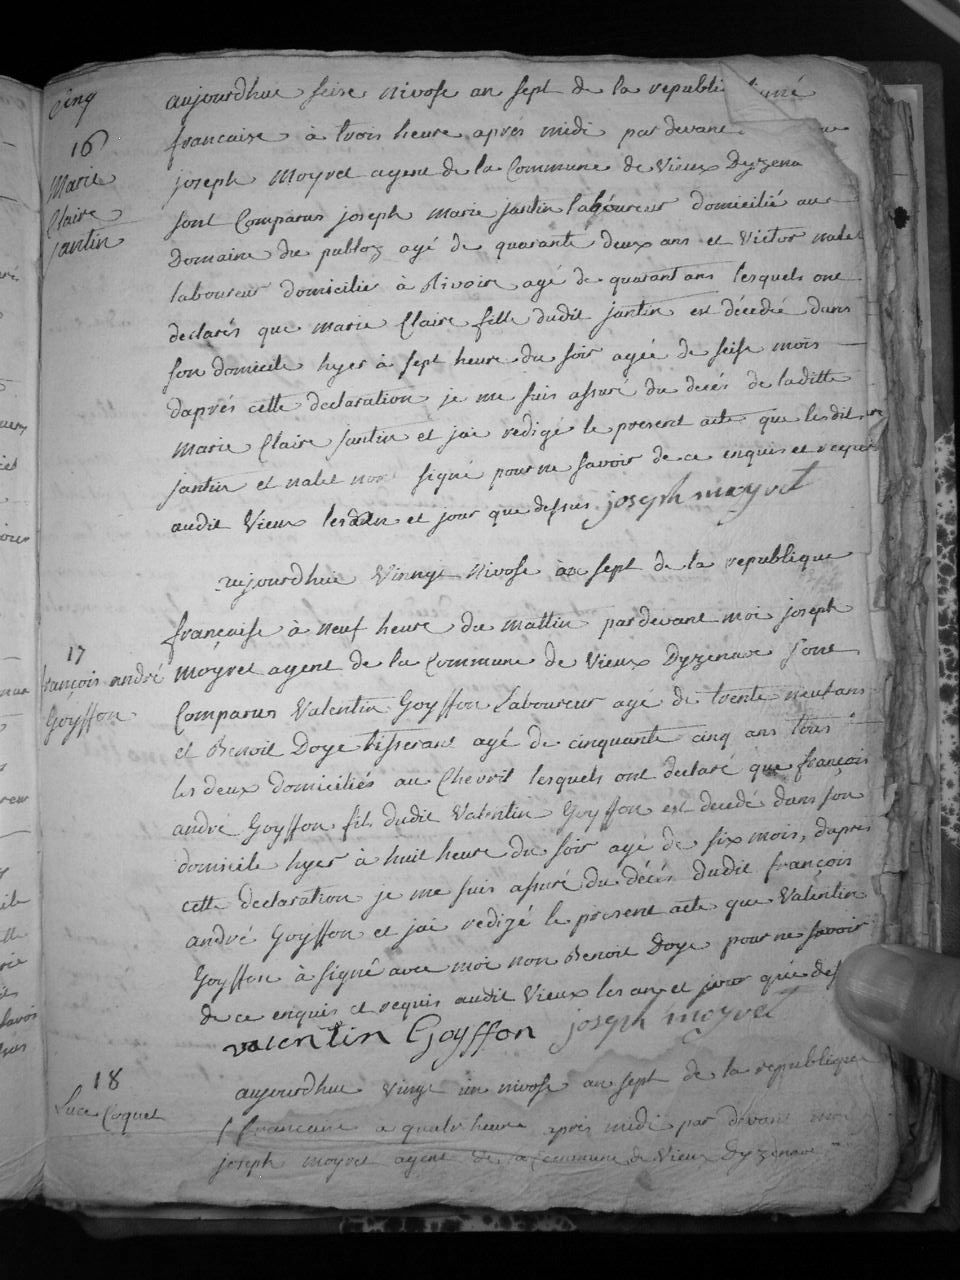 Cinq
16
Marie
Claire
jantin
aujourdhui seise nivose an sept de la republi
francaise à trois heure aprés midi par devant
joseph Moyret agent de la Commune de Vieux Dyzena
sont Comparus joseph marie jantin laboureur domicilié aux
Domaine du publoz agé de quarante deux ans et Victor nalet
laboureur domicilié à Rivoire agé de quarant ans lesquels ont
declarés que marie Claire fille dudit jantin est décedée dans
son domicile hyer à sept heure du soir agée de seise mois
daprés cette declaration je me suis assuré du decés de laditte
Marie Claire jantin et jai redigé le present acte que lesdit
jantin et nalet non signé pour ne savoir de ce enquis et requis
audit Vieux les an et jour que dessus joseph moyret
17
françois andré
Goyffon
aujourdhui Vinngt Nivose an sept de la republique
française à neuf heure du mattin pardevant moi joseph
Moyret agent de la Commune de Vieux Dyzenave sont
Comparus Valentin Goyffon Laboureur agé de trente neuf ans
et Benoit Doye tisserant agé de cinquante cinq ans tous
les deux domiciliés au Chevril lesquels ont declaré que françois
andré Goyffon fils dudit Valentin Goyffon est decedé dans son
domicile hyer à huit heure du soir agé de six mois, daprés
cette declaration je me suis assuré du décés dudit françois
andré Goyffon et jai redizé le present acte que Valentin
Goyffon à signé avec moi non Benoit Doye pour ne savoir
de ce enquis et requis audit Vieux les an et jour que des
valentin Goyffon joseph moyret
18
Luce Coquet
aujourdhui Vingt un nivose an sept de la republique
francaise a quatre heure apres midi par devant moi
joseph moyret agent de la Commune de Vieux Dyzenave